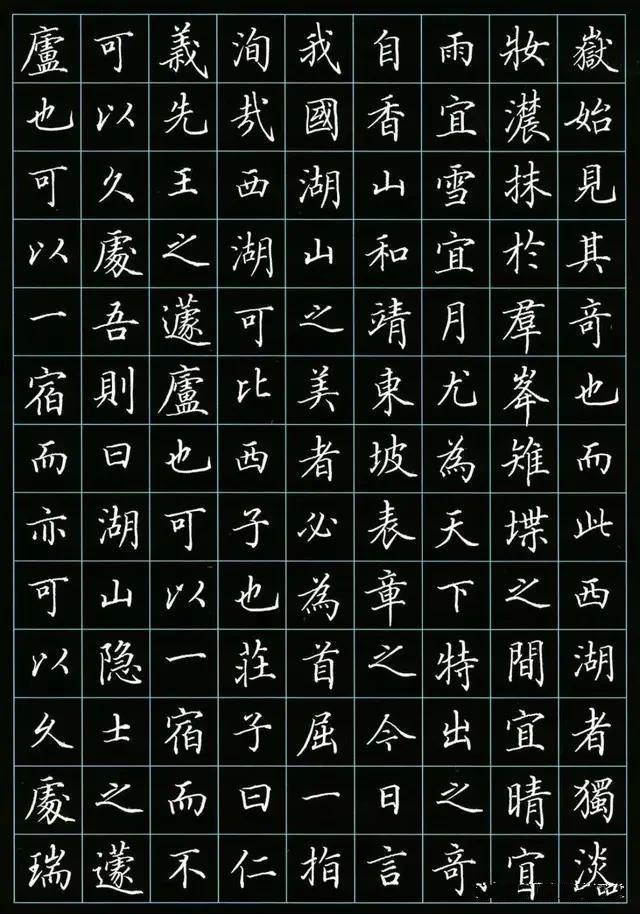 嶽始見其竒也而此西湖者獨淡
妝濃抹於羣峯雉堞之間宜晴宜
雨宜雪宜月尤為天下特出之竒
自香山和靖東坡表章之今日言
我國湖山之美者必為首屈一指
洵哉西湖可比西子也莊子曰仁
義先王之蘧廬也可以一宿而不
可以久處吾則曰湖山隐士之蘧
廬也可以一宿而亦可以久處瑞